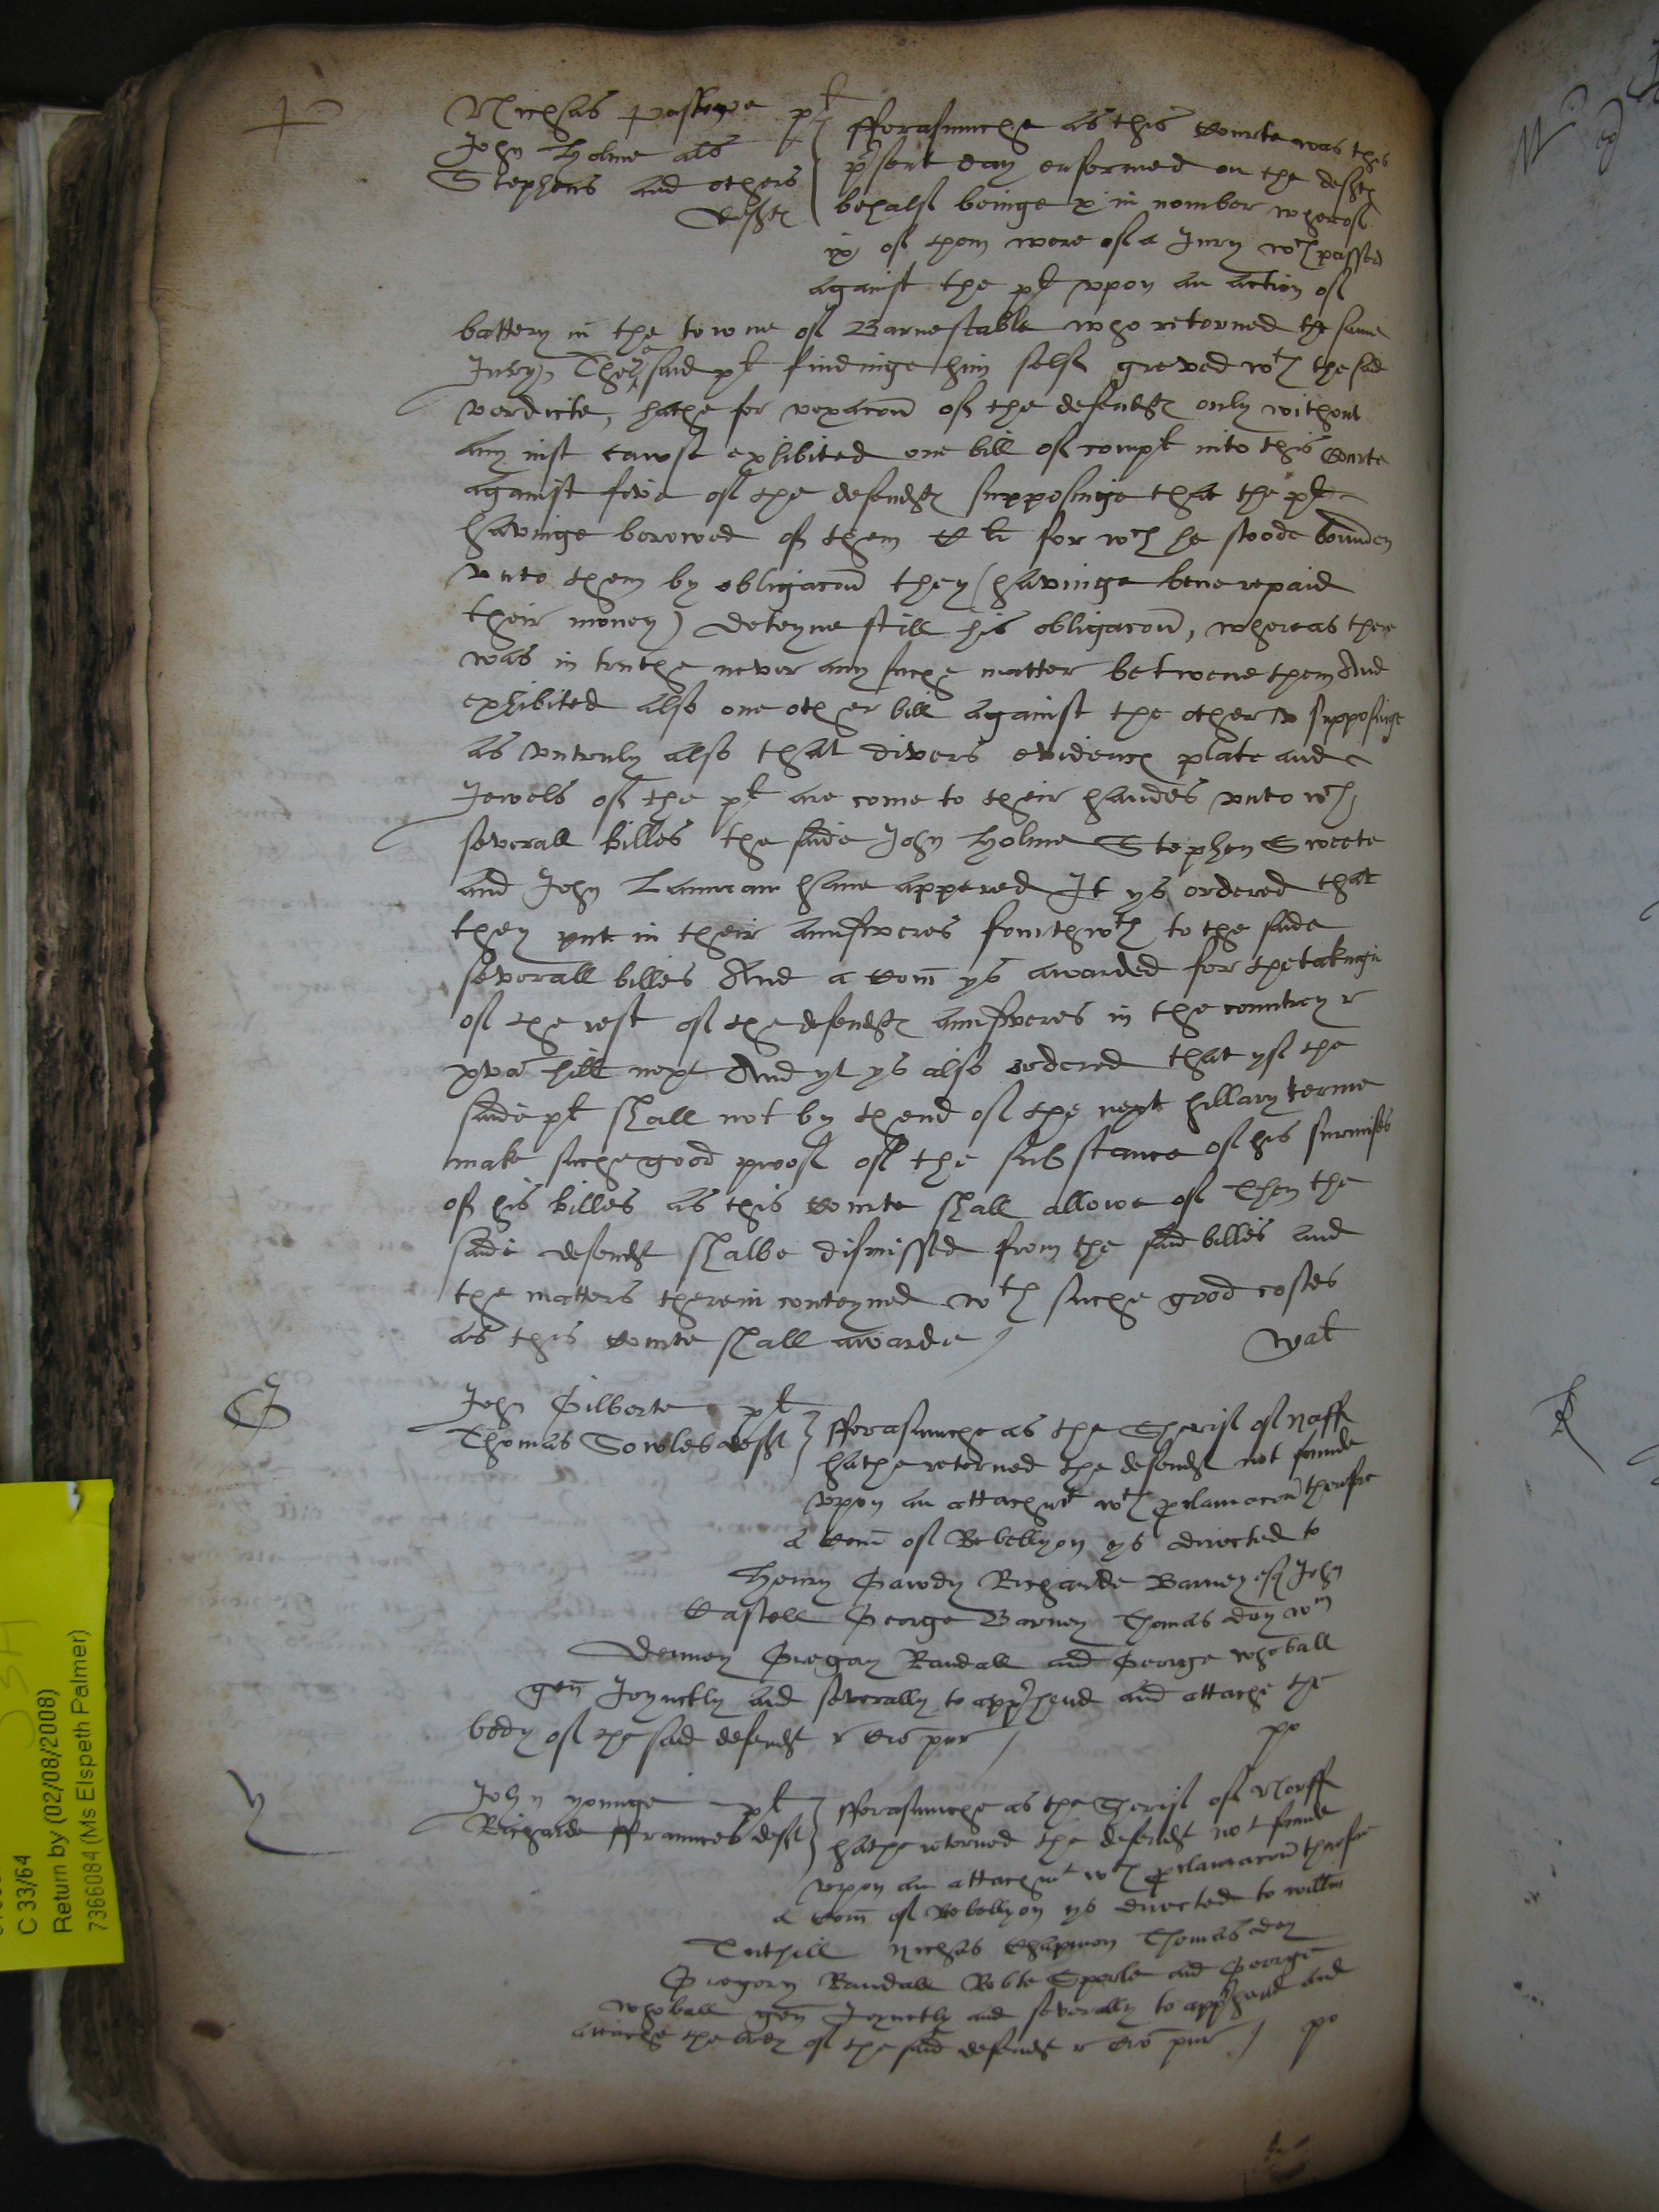 Nichas Pastowe plt
John Holme als
Stephens and others
defts
fforasmuche as this Courte was this
pñsent day enformed on the defts
behalf beinge x in nomber wherof
ix of them were of a Jury wch passed
against the plt vpon an action of
battery in the towne of Barnestable who retorned the same
Jury, The said plt findinge him self greved wth the said
verdicte, hathe for vexacoñ of the defendts only without
any iust cawse exhibited one bill of complt into this Courte
against five of the defendts supposinge that the plt
havinge borowed of them C li for wch he stoode bounden
vnto them by obligacoñ they (havinge bene repaid
their money) deteyne still his obligacoñ, whereas there
was in truthe never any suche matter betwene them And
exhibited also one other bill against the other v supposinge
as vntruly also that divers evidencs plate and
Jewels of the plt are come to their handes vnto wch
severall billes the saide John Holme Stephen Sweete
and John have appered It ys ordered that
they put in their aunsweres fourthwth to the saide
severall billes And a Com̃ ys awarded for the takinge
of the rest of the defendts aunsweres in the countrey r
xva hill next And yt ys also ordered that yf the
saide plt shall not by thend of the next hillary terme
make suche good proof of the substance of his surmises
of his billes as this Courte shall allowe of Then the
saide defendt shalbe dismissed from the said billes and
the matters therein conteyned wth suche good costes
as this Courte shall awarde /
wat
John Gilberte plt
Thomas Sowles deft
fforasmuche as the Sherif of Naff
hathe retorned the defendt not founde
vpon an attachmt wth proclamacoñ therefore
a Com̃ of Rebellyon ys directed to
Henry Gawdy Richarde Barney esq John
Castell George Barney Thomas Dey wm
Denney Gregory Randall and George Whoball
geñ Joynctly and severally to apprehend and attache the
body of the said defendt r Cro pur /
po
John younge plt
Richarde ffraunces deft
fforasmuche as the Sherif of Norff
hathe retorned the defendt not founde
vpon an attachmt wth proclamacoñ therefore
a Com̃ of Rebellyon ys directed to willm
Tuthill Nichas Chapman Thomas Dey
Gregory Randall Robte Sperle and George
Whoball geñ Joynctly and severally to apprehend and
attache the body of the said defendt r Cro pur /
po
C 33/64
Return by (02/08/2008)
7366084 (Ms Elspeth Palmer)